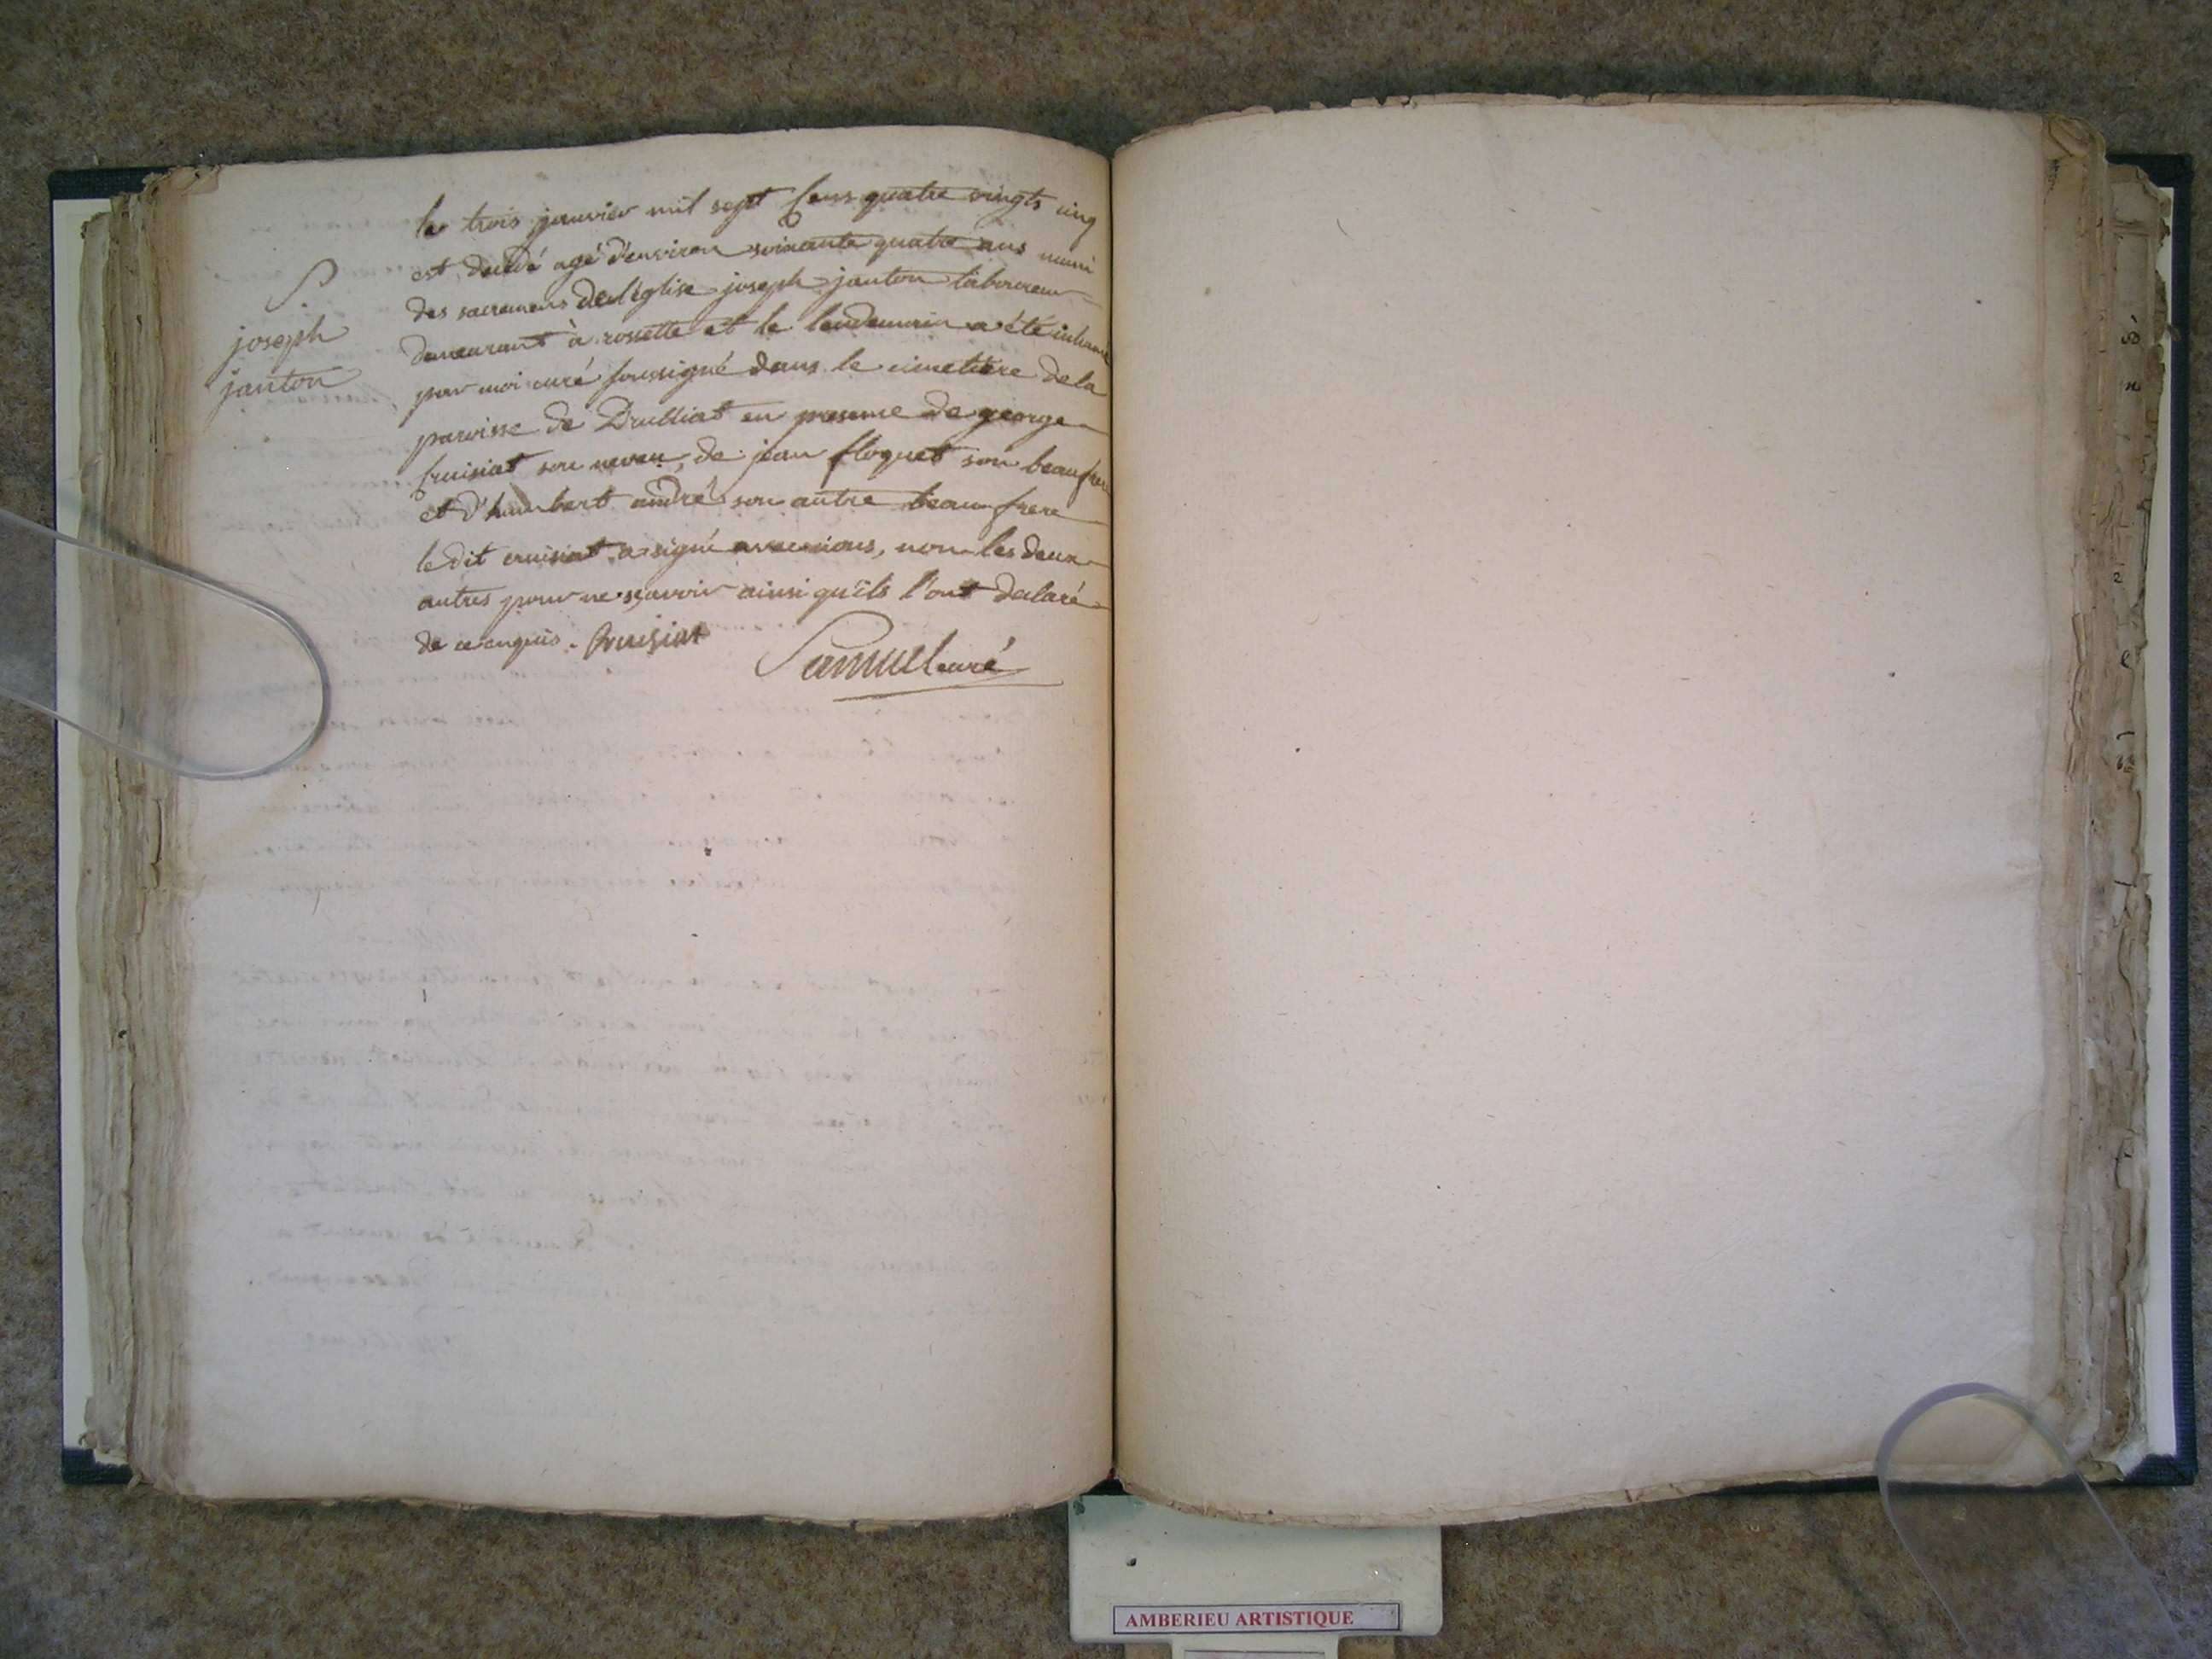 S.
joseph
janton
le trois janvier mil sept Cens quatre vingts cinq
est decedé agé d'environ soixante quatre ans muni
des sacremens de l'église joseph janton laboureur
demeurant à rossette et le lendemain a été inhumé
par moi curé soussigné dans le cimetiere de la
paroisse de Druilliat en presence de george
Cruisiat son neveu, de jean floquet son beaufrere
et d'humbert andré son autre beau frere
le dit cruisiat a signé avec nous, non les deux
autres pour ne sçavoir ainsi qu'ils l'ont declaré
de ce enquis. Cruisiat
Samuel curé
AMBERIEU ARTISTIQUE